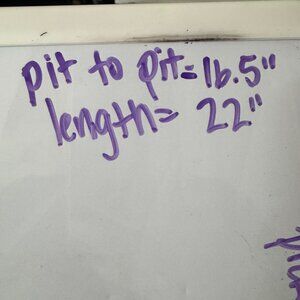 pit to pit=16.5"
length= 22"